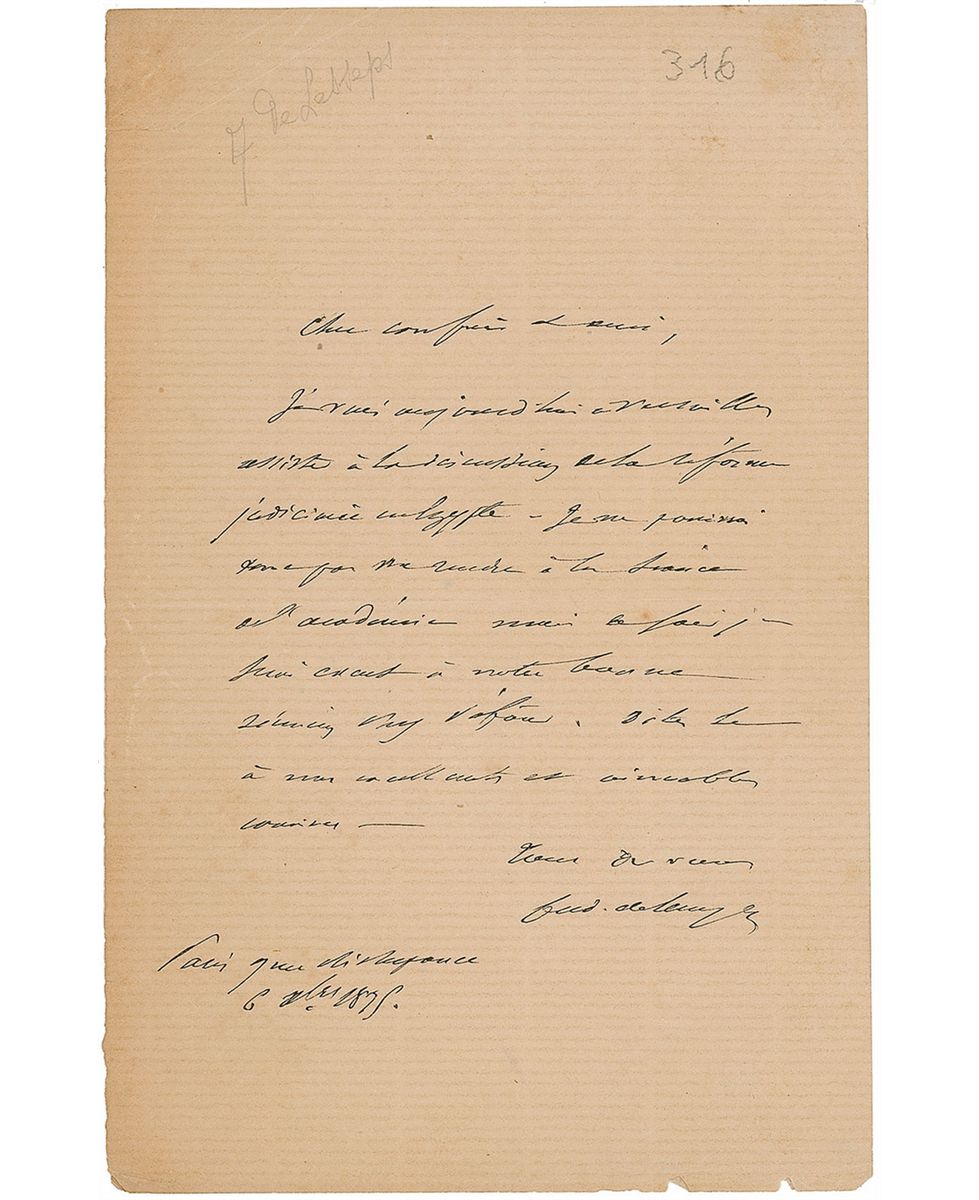 F De Lesseps
316
Cher confrère & ami,
Je vais aujourd'hui à Versailles
assister à la discussion de la réforme
judiciaire en Egypte - Je ne pourrai
donc pas me rendre à la séance
de l'académie mais ce soir je
serai exact à notre bonne
réunion chez Véfour. Dites le
à nos excellents et aimables
convives —
Tout à vous
Ferd. de Lesseps
Paris 9 rue
6 Xbre 1875.